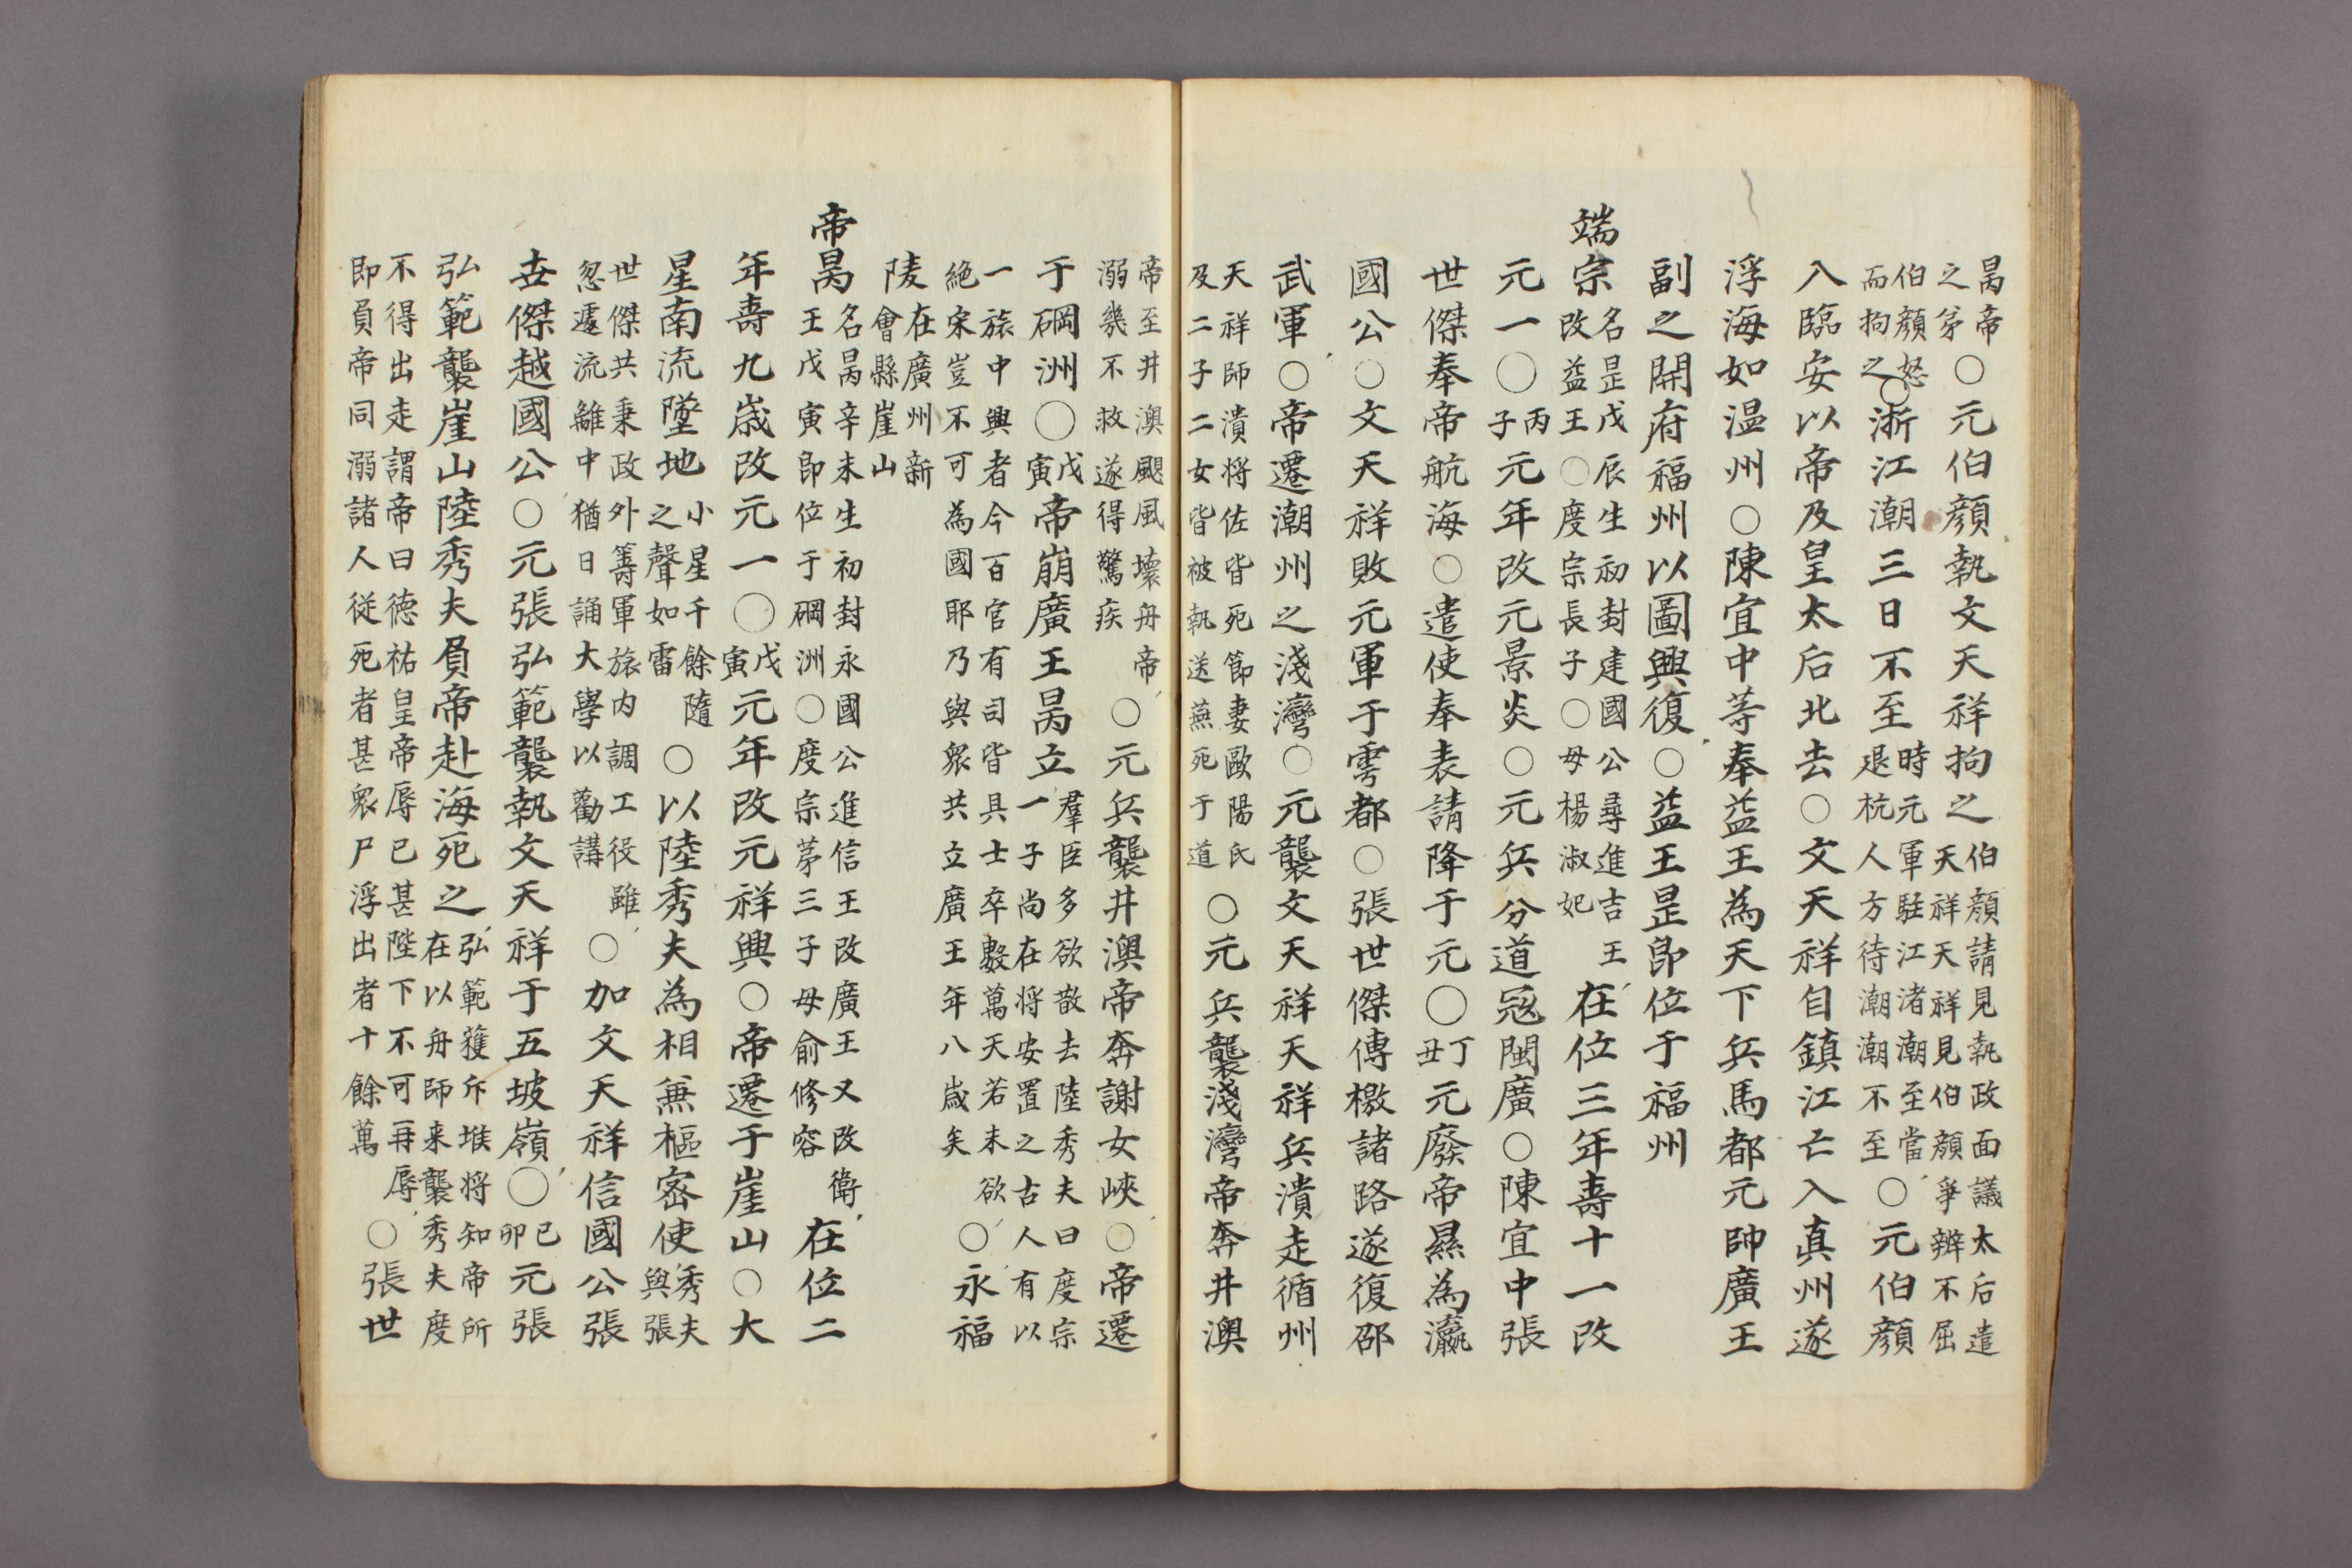 昺帝之第○元伯顔執文天祥拘之伯顔請見執政面議太后遣天祥天祥見伯顔爭辧不屈
伯顔怒而拘之○浙江潮三日不至時元軍駐江渚潮至當退杭人方待潮潮不至○元伯顔
入臨安以帝及皇太后北去○文天祥自鎮江亡入真州遂
浮海如温州○陳宜中等奉益王為天下兵馬都元帥廣王
副之開府福州以圖興復○益王昰即位于福州
端宗名昰戊辰生初封建國公尋進吉王改益王○度宗長子○母楊淑妃在位三年壽十一改
元一○丙子元年改元景炎○元兵分道冦閩廣○陳宜中張
世傑奉帝航海○遣使奉表請降于元○丁丑元廢帝㬎為瀛
國公○文天祥敗元軍于雩都○張世傑傳檄諸路遂復邵
武軍○帝遷潮州之淺灣○元襲文天祥天祥兵潰走循州
天祥師潰将佐皆死節妻歐陽氏及二子二女皆被執送燕死于道○元兵襲淺灣帝奔井澳
帝至井澳颶風壊舟帝溺幾不救遂得驚疾○元兵襲井澳帝奔謝女峽○帝遷
于碙洲○戊寅帝崩廣王昺立羣臣多欲散去陸秀夫曰度宗一子尚在将安置之古人有以
一旅中興者今百官有司皆具士卒數萬天若未欲絶宋豈不可為國耶乃與衆共立廣王年八歳矣○永福
陵在廣州新會縣崖山
帝昺名昺辛未生初封永國公進信王改廣王又改衛王戊寅即位于碙洲○度宗苐三子母俞修容在位二
年壽九歳改元一○戊寅元年改元祥興○帝遷于崖山○大
星南流墜地小星千餘隨之聲如雷○以陸秀夫為相兼樞密使秀夫與張
世傑共秉政外籌軍旅内調工役雖忽遽流離中猶日誦大學以勸講○加文天祥信國公張
世傑越國公○元張弘範襲執文天祥于五坡嶺○已卯元張
弘範襲崖山陸秀夫負帝赴海死之弘範獲斥堠将知帝所在以舟師来襲秀夫度
不得出走謂帝曰德祐皇帝辱已甚陛下不可再辱即負帝同溺諸人従死者甚衆尸浮出者十餘萬○張世